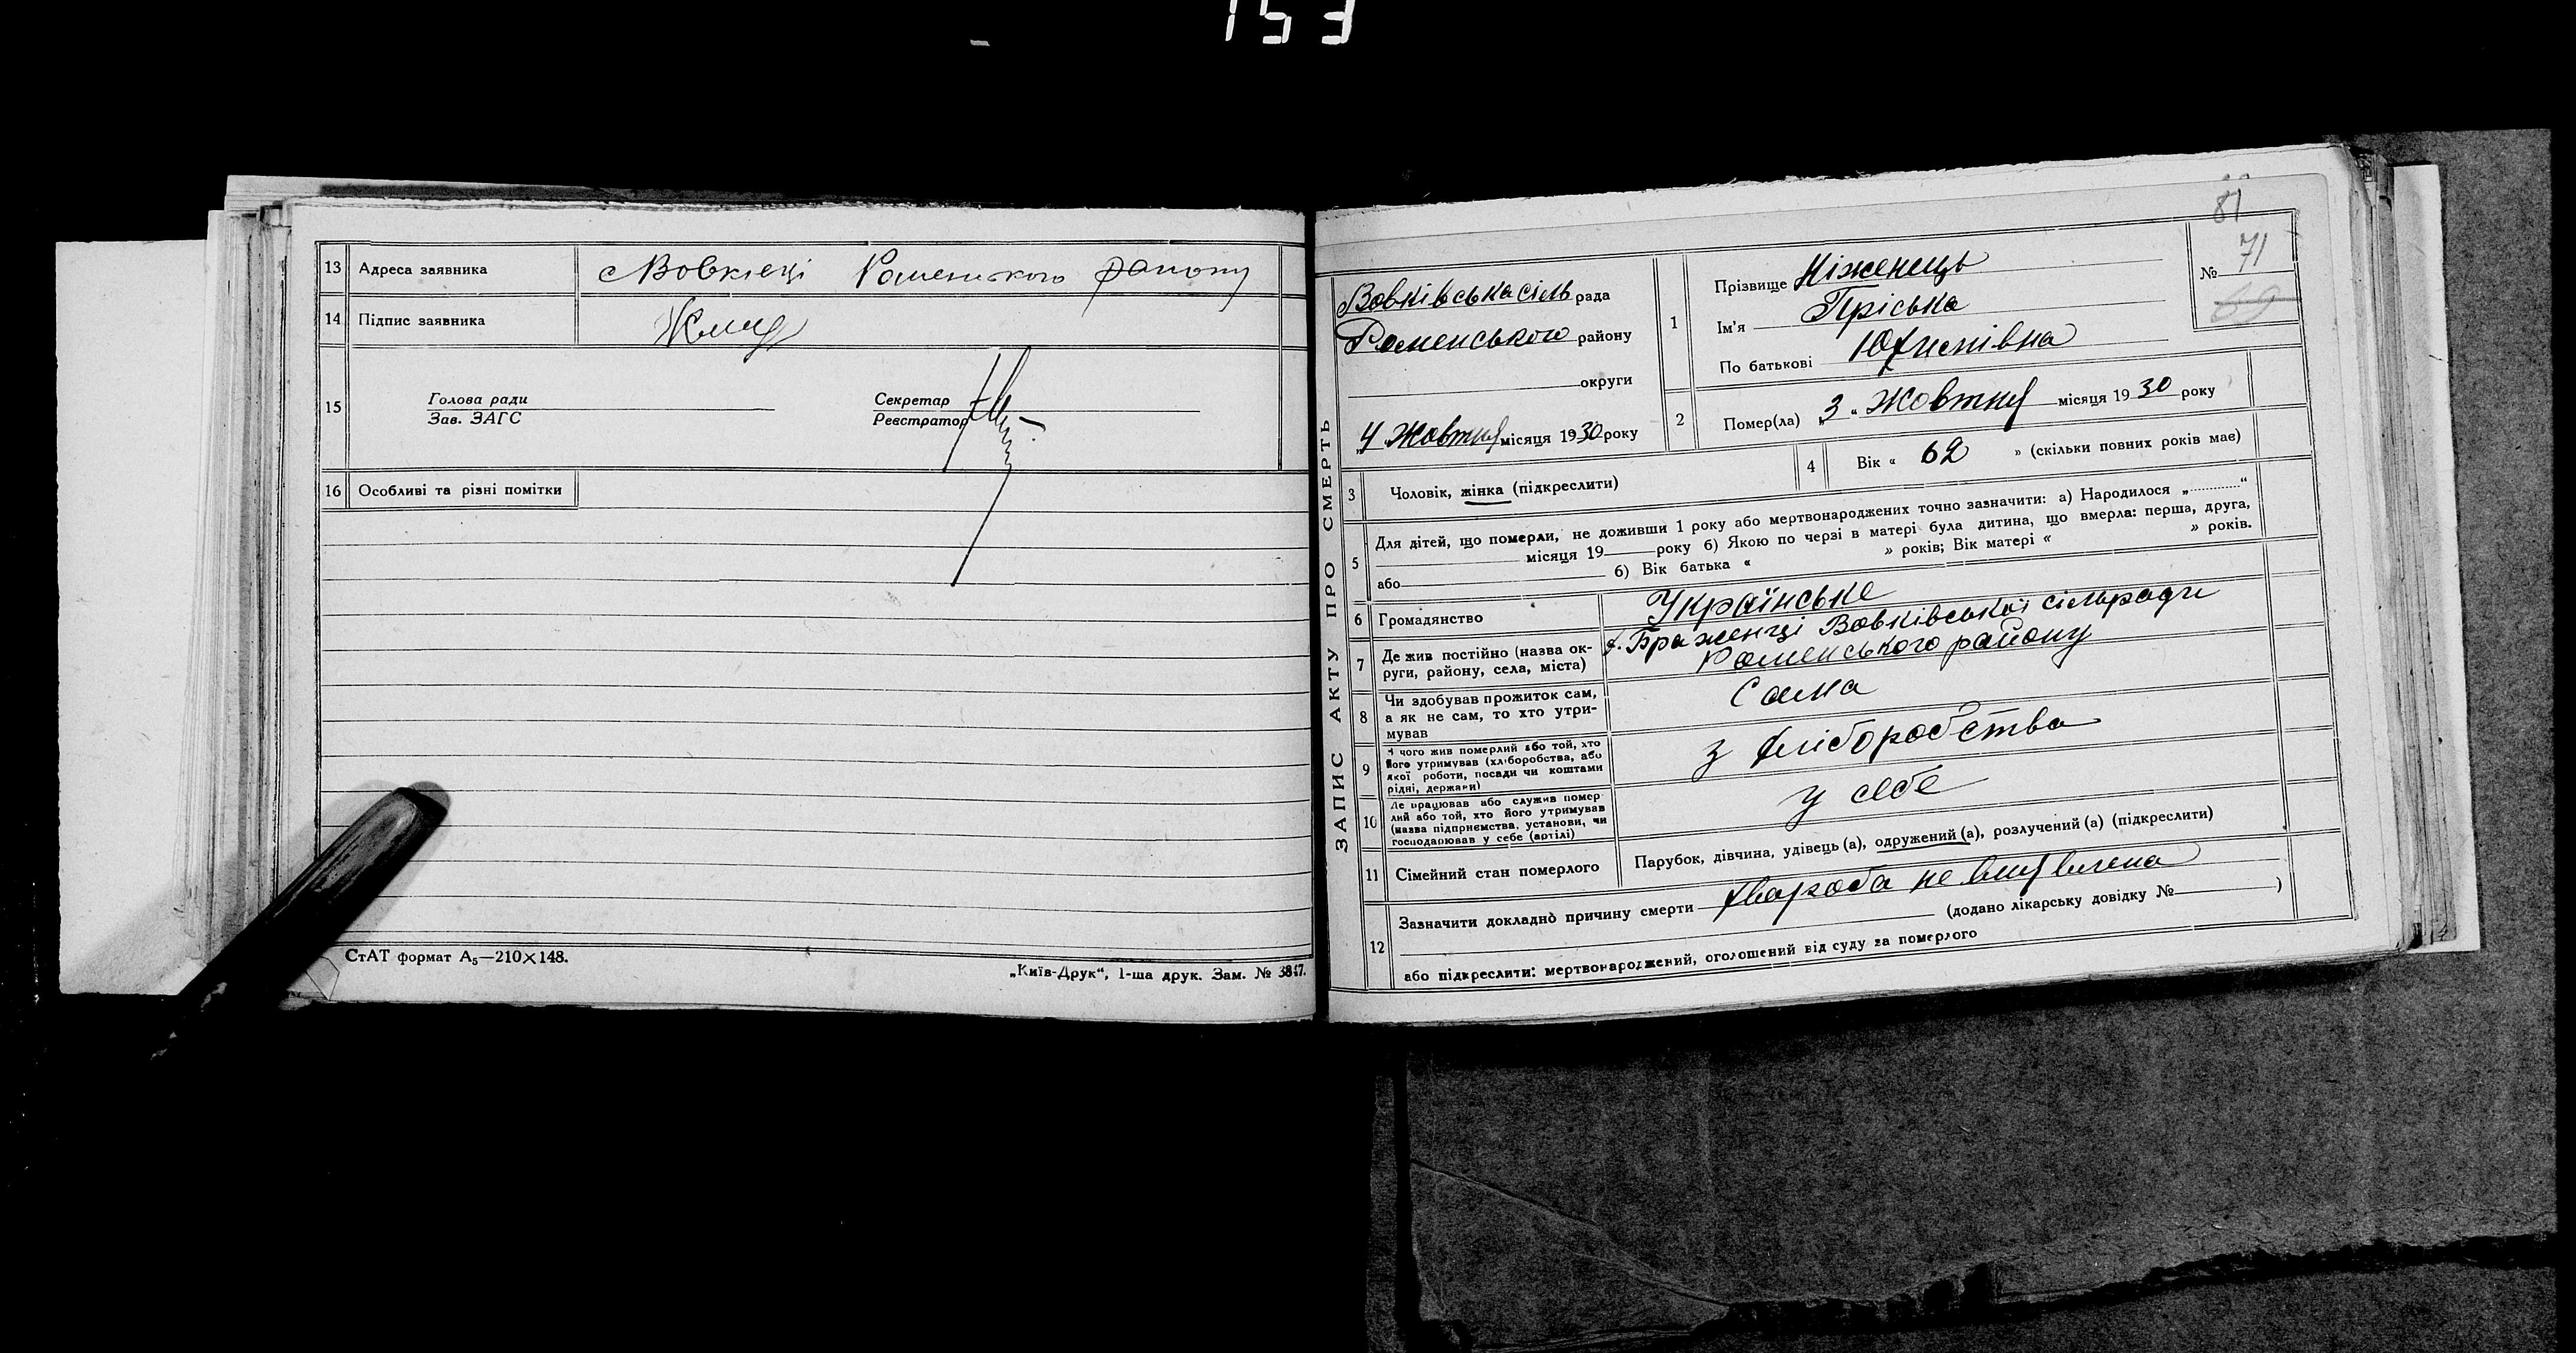 153
13 Адреса заявника Вовківці Роменського району
14 Підпис заявника
15 Голова ради
Зав. ЗАГС
Секретар
Реєстратор
16 Особливі та різні помітки
СтАТ формат А₅—210×148.
„Київ-Друк“, 1-ша друк. Зам. № 3847.
81
ЗАПИС АКТУ ПРО СМЕРТЬ
Вовківська сіль рада
Роменського району
округи
„4 Жовтня місяця 1930 року
1 Прізвище Ніженець
Ім'я Пріська
По батькові Юхимівна
№ 71
69
2 Помер(ла) „3“ Жовтня місяця 1930 року
3 Чоловік, жінка (підкреслити)
4 Вік « 62 » (скільки повних років має)
5 Для дітей, що померли, не доживши 1 року або мертвонароджених точно зазначити: а) Народилося „............“
місяця 19 року б) Якою по черзі в матері була дитина, що вмерла: перша, друга,
або б) Вік батька « » років; Вік матері « » років.
6 Громадянство Українське
7 Де жив постійно (назва ок-
руги, району, села, міста)
х. Браженці Вовківської сільради
Роменського району
8 Чи здобував прожиток сам,
а як не сам, то хто утри-
мував
Сама
9 З чого жив померлий або той, хто
його утримував (хліборобства, або
якої роботи, посади чи коштами
рідні, держави)
з хліборобства
10 Де працював або служив помер-
лий або той, хто його утримував
(назва підприємства, установи, чи
господарював у себе (артілі)
у себе
11 Сімейний стан померлого Парубок, дівчина, удівець(а), одружений(а), розлучений(а) (підкреслити)
12 Зазначити докладно причину смерти хвароба не виявлена
(додано лікарську довідку № )
або підкреслити: мертвонароджений, оголошений від суду за померлого